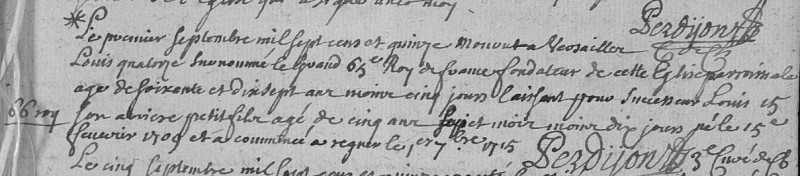 Perdijon
Le premier septembre mil sept cens et quinze mourut a Versailles
Louis quatorze surnommé le Grand 65e Roy de france fondateur de cette Eglise parroissiale
age de soixante et dix sept ans moins cinq jours laissant pour successeur Louis 15
66 roy son arriere petit fils agé de cinq ans sept mois moins dix jours né le 15e
feuvrier 1709 et a commencé a regner le 1er 7bre 1715
Perdijon 3e Curé de
Le cinq septembre mil sept cens et quinze